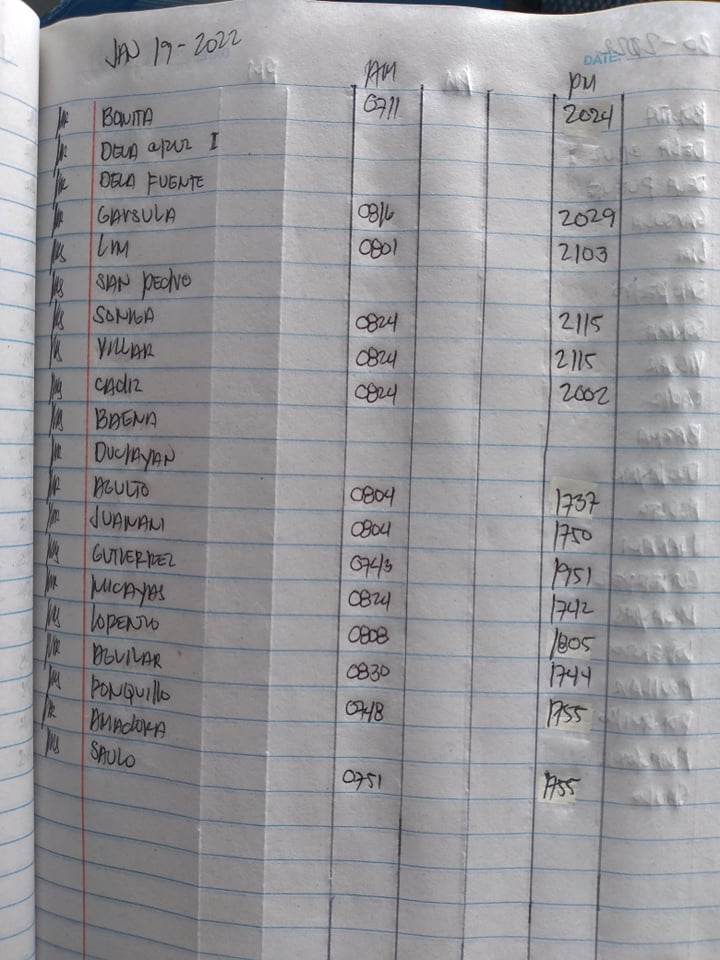 JAN 19-2022
DATE:
AM PM
Mr BONITA 0711 2024
Mr DELA CRUZ I
Mr DELA FUENTE
Mr GARSULA 0816 2029
Ms LIM 0801 2103
Ms SAN PEDRO
Ms SONGA 0824 2115
Ms VILLAR 0824 2115
Ms CADIZ 0824 2002
Ms BAENA
Mr DUCLAYAN
Mr AGULTO 0804 1737
Mr JUANANI 0804 1750
Ms GUTIERREZ 0743 1951
Mr MICAYAS 0824 1742
Ms LORENZO 0808 1805
Mr AGUILAR 0830 1744
Ms RONQUILLO 0748 1755
Mr AMADORA
Ms SAULO 0751 1755